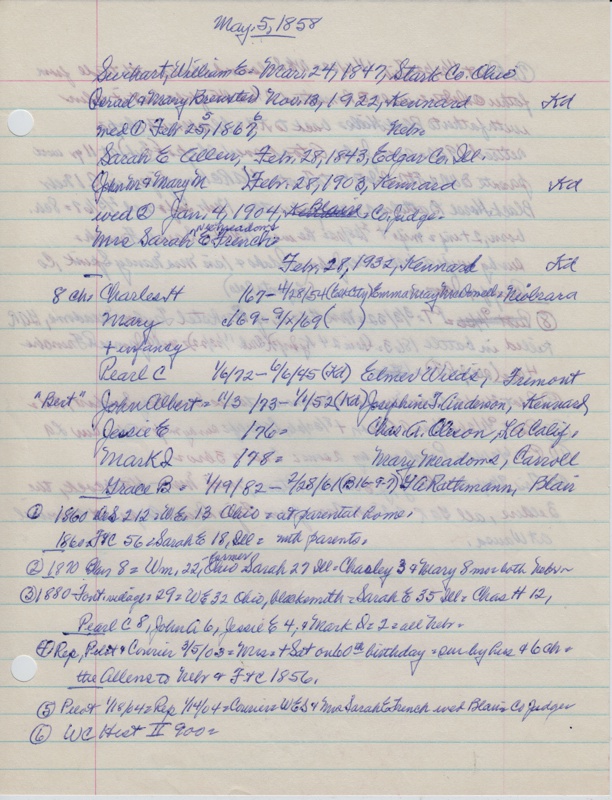 May. 5, 1858
Swihart, William E = Mar. 24, 1847, Stark Co. Ohio
Nov. 13, 1922, Kennard Kd
wed ① Feb 25, 1867, Nebr.
Sarah E Allen, Feb. 28, 1843, Edgar Co. Ill.
John M & Mary M Feb. 28, 1903, Kennard Kd
wed ② Jan. 4, 1904, Co Judge.
Mrs Sarah E French = nee Meadows
Feb. 28, 1932, Kennard Kd
8 ch= Charles H /67 - 4/28/54 Emma May McDonell = Niobrara
Mary /69 - 9/x/69 ( )
+ infancy
Pearl C 1/6/72 - 6/6/45 (Kd) Elmer Wilds, Fremont
"Bert" John Albert = 11/3/73 - 1/1/52 (Kd) Josephine F. Anderson, Kennard
Jessie E /76 = Chas. A. Olxon, LA Calif.
Mark D /78 = Mary Meadows, Carroll
Grace B = 1/19/82 - 2/28/61 (B16-9-7) G A Rathmann, Blair
① 1860 212 = WE 13 Ohio = at parental home.
1860 FtC 56 = Sarah E 18, Ill = with parents.
② 1870 8 = Wm, 22, farmer Ohio Sarah 27 Ill = Charley 3 & Mary 8 mos both Nebr =
③ 1880 Font. village = 29 = WE 32 Ohio, blacksmith = Sarah E 35 Ill = Chas H 12,
Pearl C 8, John A 6, Jessie E 4, & Mark D = 2 = all Nebr.
④ Rep, Pilot & Courier 3/5/03 = Mrs = + Sat on 60th birthday = sur by hus & 6 ch =
the Allens to Nebr & FtC 1856.
⑤ Pilot 1/18/04 = Rep 1/14/04 = Courier = WES & Mrs Sarah E French wed Blair Co Judge
⑥ WC Hist II 900 =